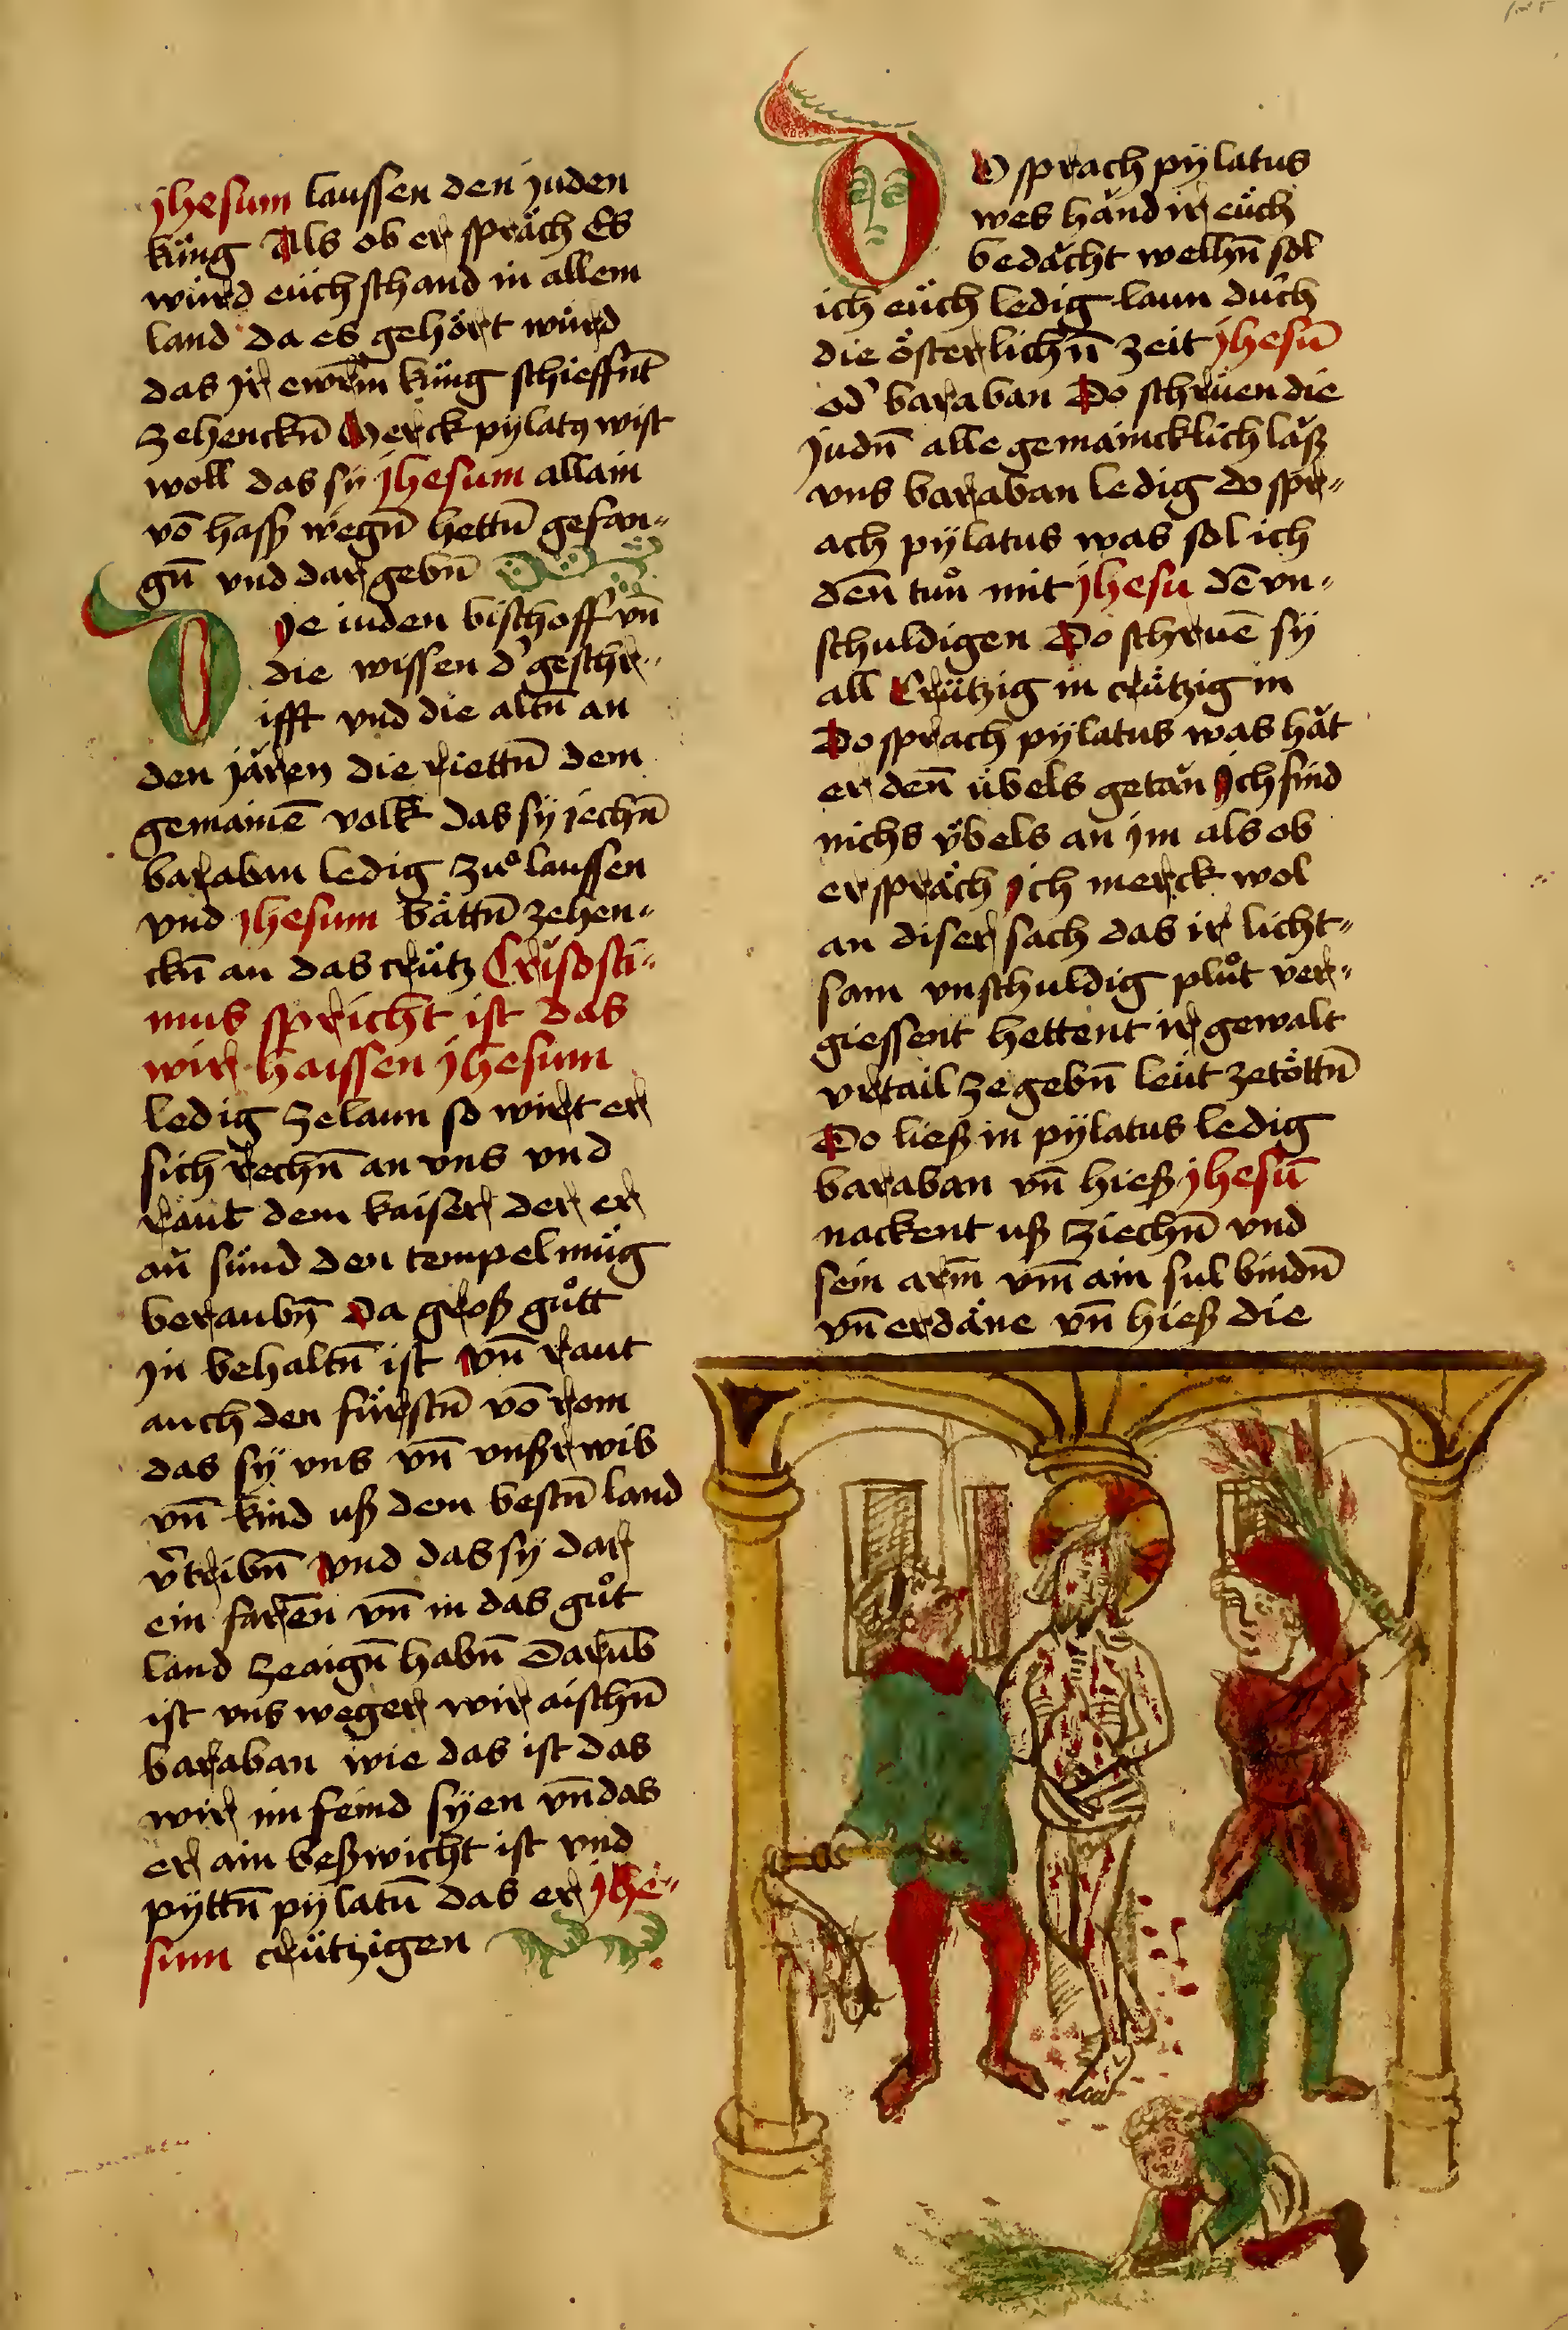 jhesum laussen den juden
küng Als ob er spräch Es
würd eüch schand in allem
land da es gehört würd
das jr ewrm küng schieffnt
zehenckn̄ Merck pylatꝯ wist
woll das sy jhesum allain
vō hass wegn̄ hettn̄ gefan„
gn̄ vnd dar gebn̄
Die iuden bischoff vn̄
die wissen d' geschr„
ifft vnd die altn̄ an
den jären die riettn̄ dem
gemainē volk das sy jechn̄
baraban ledig zuͦ laussen
vnd jhesum bättn̄ zehen„
ckn̄ an das crütz Crisosti„
mus spricht ist das
wir haissen jhesum
ledig zelaun so wirt er
sich rechn̄ an vns vnd
raut dem kaiser der er
aǔn sünd den tempel müg
beraubn̄ Da groß guͦtt
jn behaltn̄ ist vn̄ raut
auch den fürstn̄ vō rom
das sy vns vn̄ vnßr wib
vn̄ kind uß dem bestn̄ land
v'tribn̄ vnd das sy dar
ein farēn vn̄ in das guͦt
land zeaign̄ habn̄ Darūb
ist vns weger wir aischn̄
baraban wie das ist das
wir im feind syen vn̄ das
er ain beßwicht ist vnd
pyttn̄ pylatū das er jhe„
sum crützigen
DO sprach pylatus
wes händ ir eüch
bedächt welhn̄ sol
ich eüch ledig laun durch
die österlichn̄ zeit jhesū
od' baraban Do schrüen die
judn̄ alle gemaincklich läß
vns baraban ledig do spr„
ach pylatus was sol ich
den̄ tuͦn mit jhesu dē vn„
schuldigen Do schruē sy
all Crützig in crützig in
Do sprach pylatus was hät
er den̄ übels getän Ich find
nichs übels an jm als ob
er spräch Ich merck wol
an diser sach das ir licht„
sam vnschuldig pluͦt ver„
giessent hettent ir gewalt
vrtail zegebn̄ leüt zetöttn̄
Do ließ in pylatus ledig
baraban vn̄ hieß jhesū
nackent uß ziechn̄ vnd
sein arm̄ vm̄ ain sul bindn̄
vn̄ erdäne vn̄ hieß die